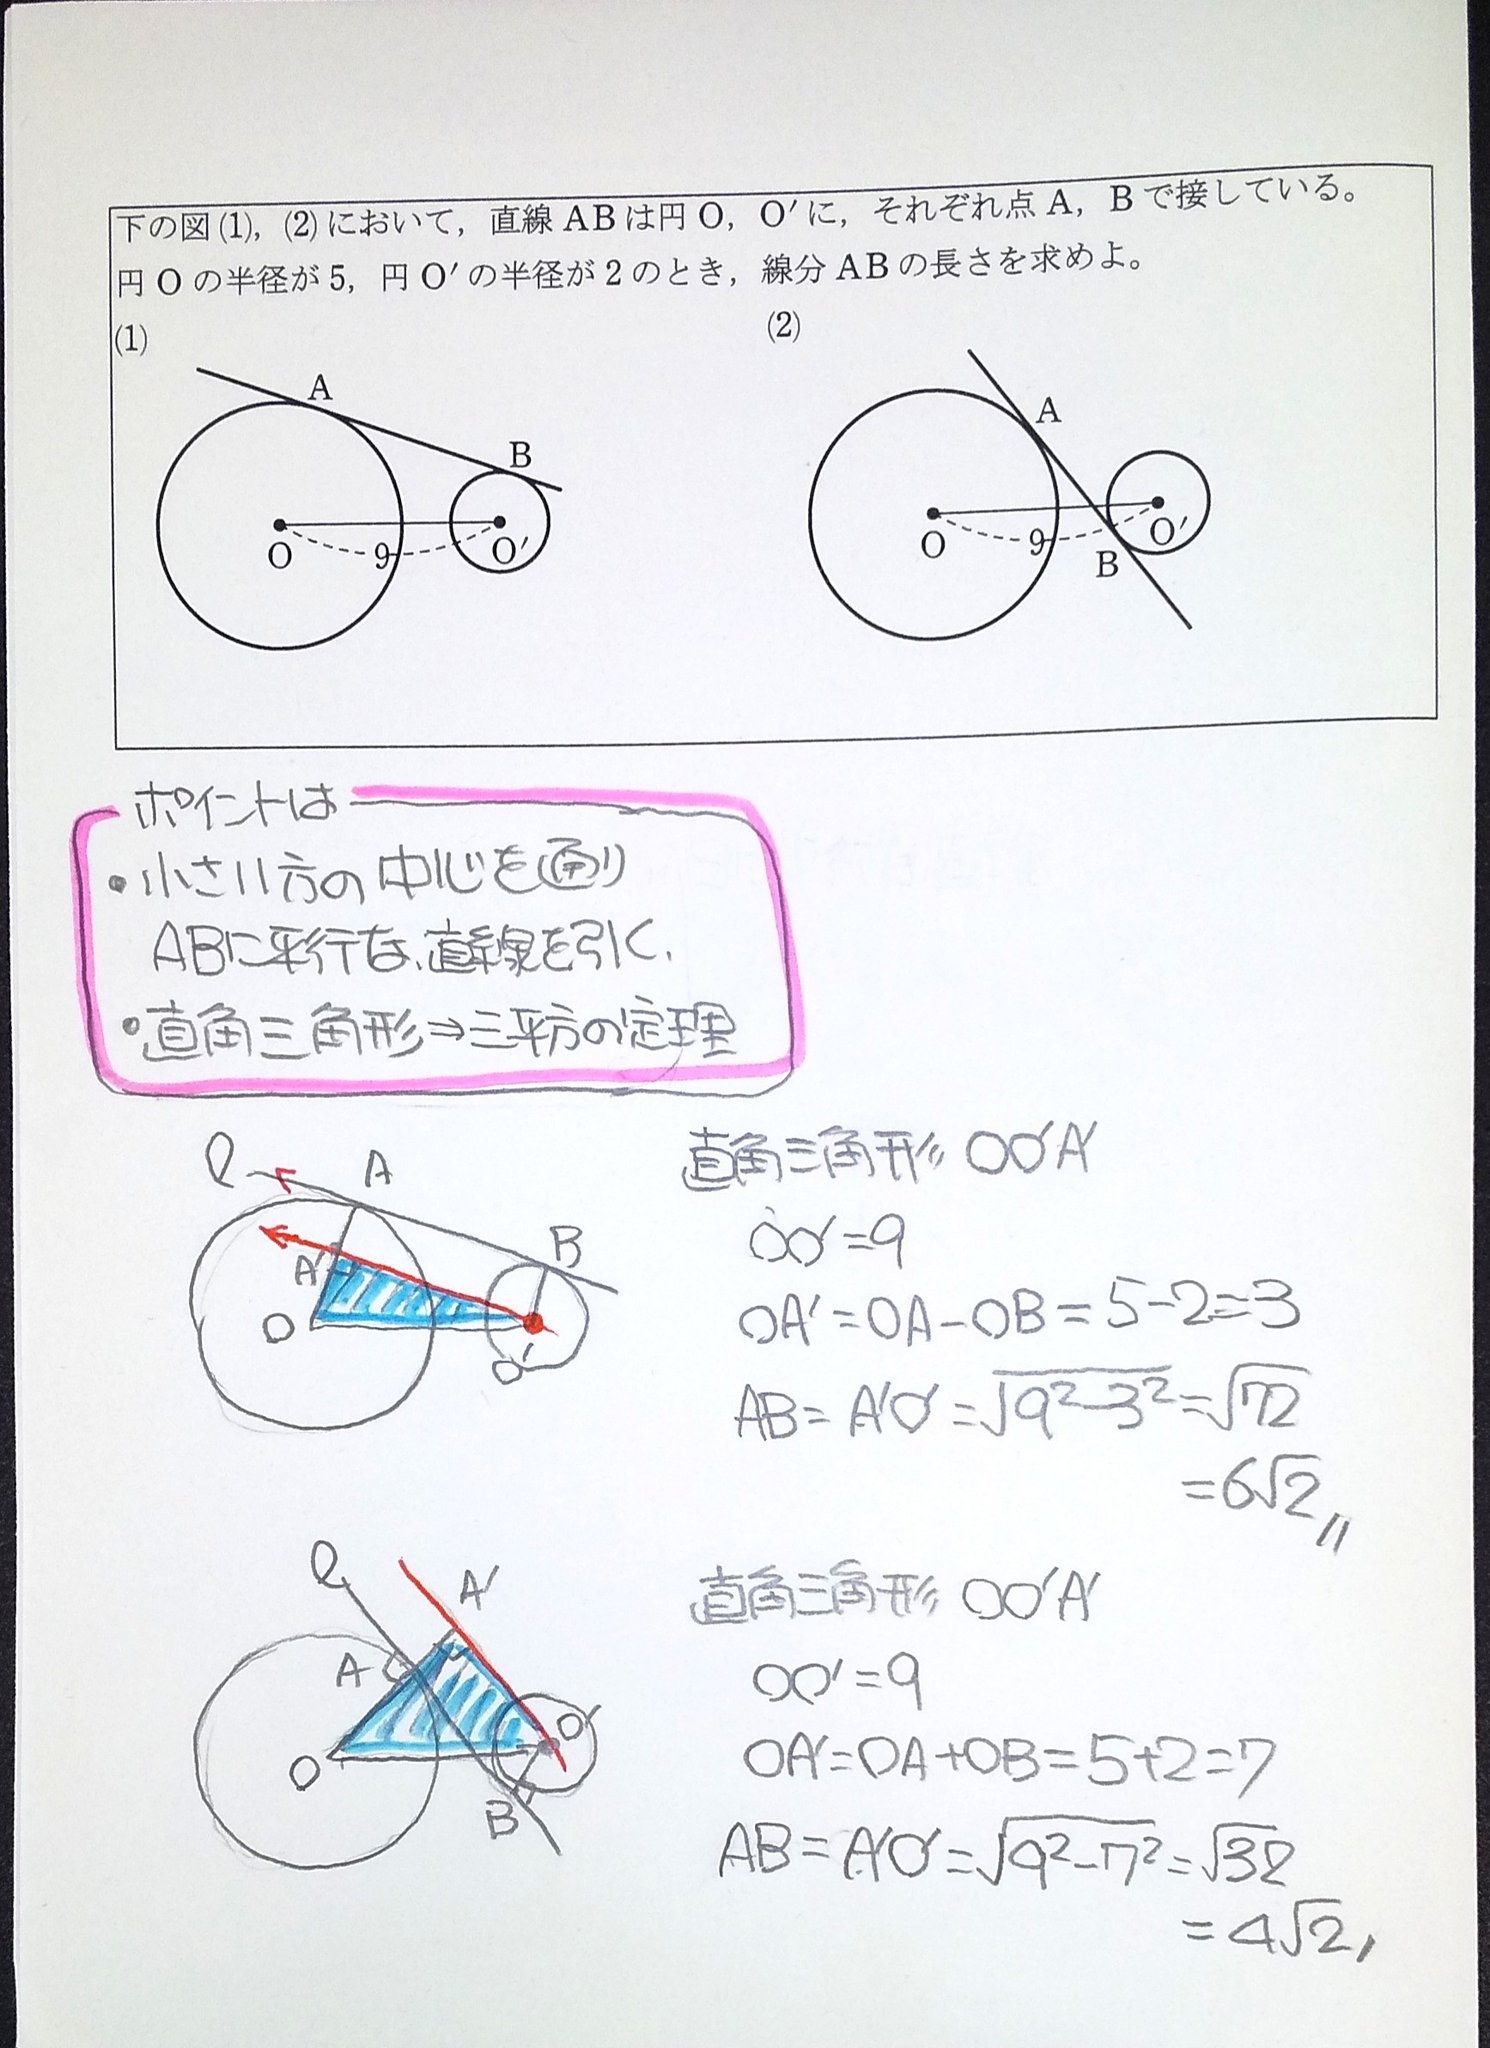 下の図(1)，(2)において，直線ABは円O，O′に，それぞれ点A，Bで接している。
円Oの半径が5，円O′の半径が2のとき，線分ABの長さを求めよ。
(1)
(2)
A
B
O
9
O′
A
O
9
B
O′
ポイントは
・小さい方の中心を通り
ABに平行な、直線を引く、
・直角三角形⇒三平方の定理
ℓ
A
A′
B
O
O′
直角三角形 OO′A′
OO′=9
OA′=OA-OB=5-2=3
AB=A′O′=√9²-3²=√72
=6√2〃
ℓ
A′
A
O′
O
B
直角三角形 OO′A′
OO′=9
OA′=OA+OB=5+2=7
AB=A′O′=√9²-7²=√32
=4√2,